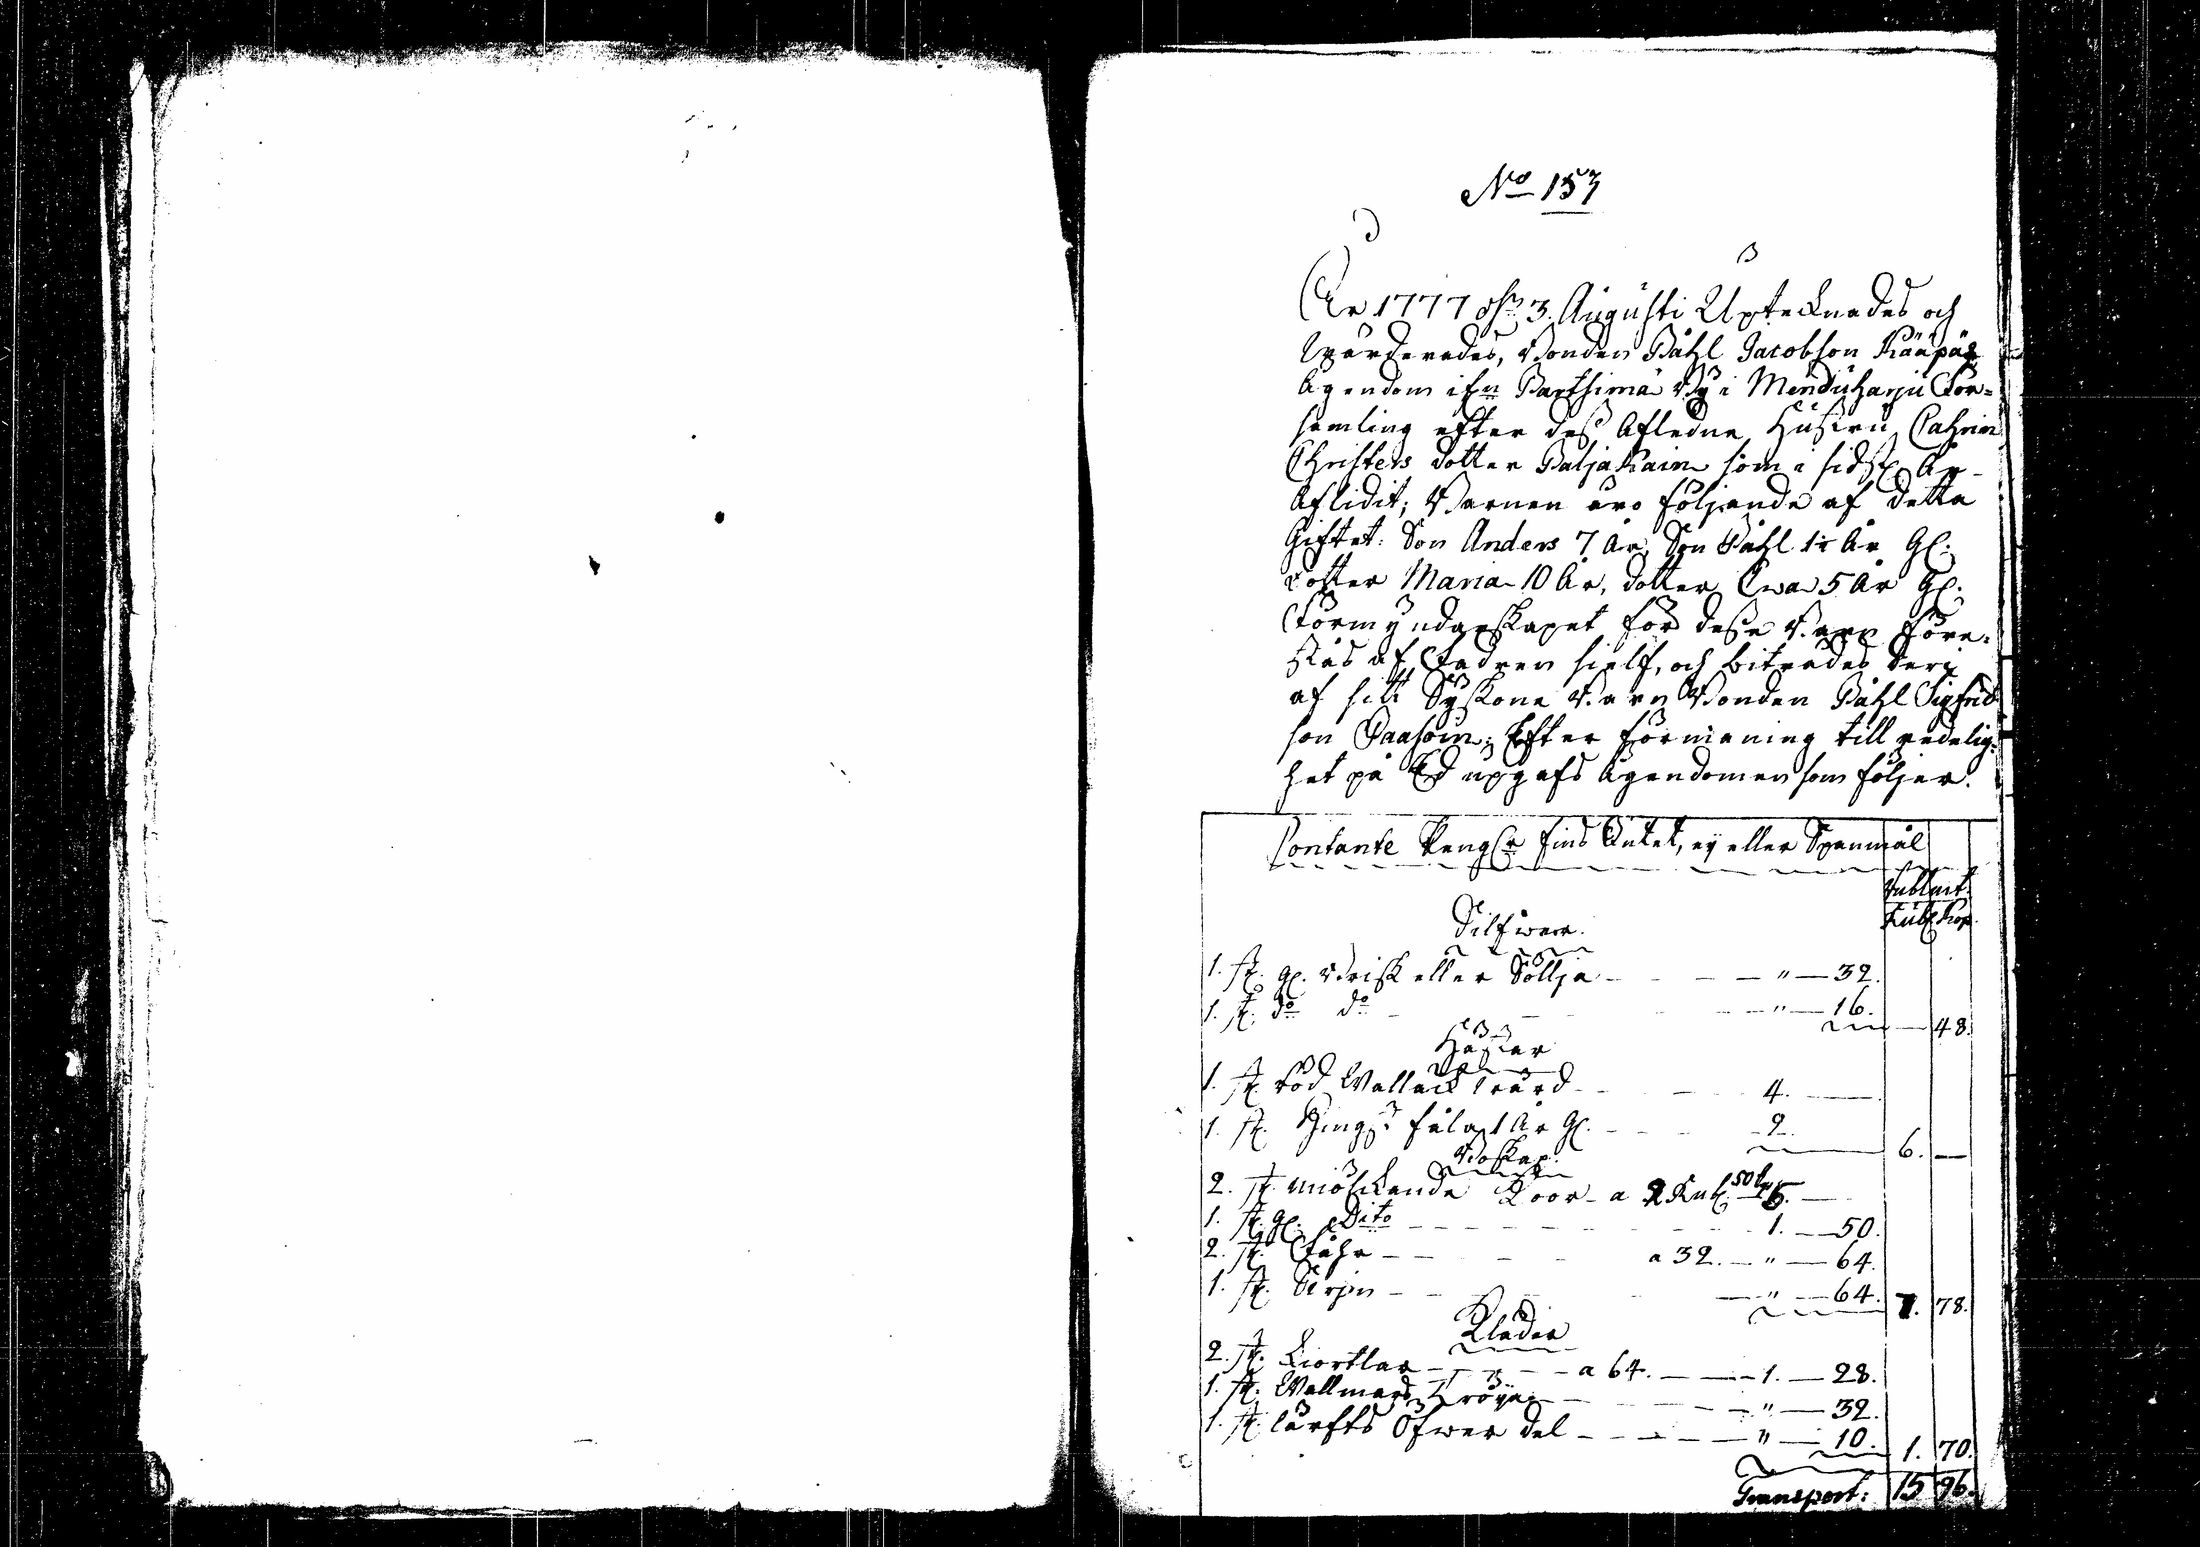 No 157
År 1777 dn 3. Augusti Uptecknades och
Wärderades, Bonden Påhl Jacobson Kääpäs
Ägendom ifn Partsimä By i Menduharju För=
samling efter dess Afledne Hustru, Cahrin
Christers dotter Paljakain som i sidst År
Aflidit; Barnen äro följande af detta
Giftet: Son Anders 7 År, Son Påhl 1½ År gl:
Dotter Maria 10 År, dotter Ewa 5 År gl:
Förmyndarskapet för desse Barn före=
stås af Fadren sielf, och biträdes deri
af sitt Syskone Barn Bonden Påhl Sigfrid
son Paasoin; Efter förmaning till redelig=
het på Ed upgafs Ägendomen som följer.
Contante Pengar fins Intet, ej eller Spanmål
Rubl Kop.
Silfwer.
1. st. gl. Brisk eller Söllja - - - " — 32.
1. st. do do - - - " — 16. — 48.
Hästar
1. st. röd Wallack wärd - - - 4. —
1. st. Hingst fåla 1 År gl. - - - 2. 6. —
Boskap.
2. st. miölkande Koor a 2 Rub. 50 5. —
1. st. gl. Dito - - - 1. — 50.
2. st. Fåhr - - - a 32. — " — 64.
1. st. - - - " — 64. 7. 78.
Kläder
2. st. Kiortlar - - - a 64. — 1. — 28.
1. st. Wallmars Tröya - - - " — 32.
1. st. lärfts Öfwer del - - - " — 10. 1. 70.
Transport: 15 96.